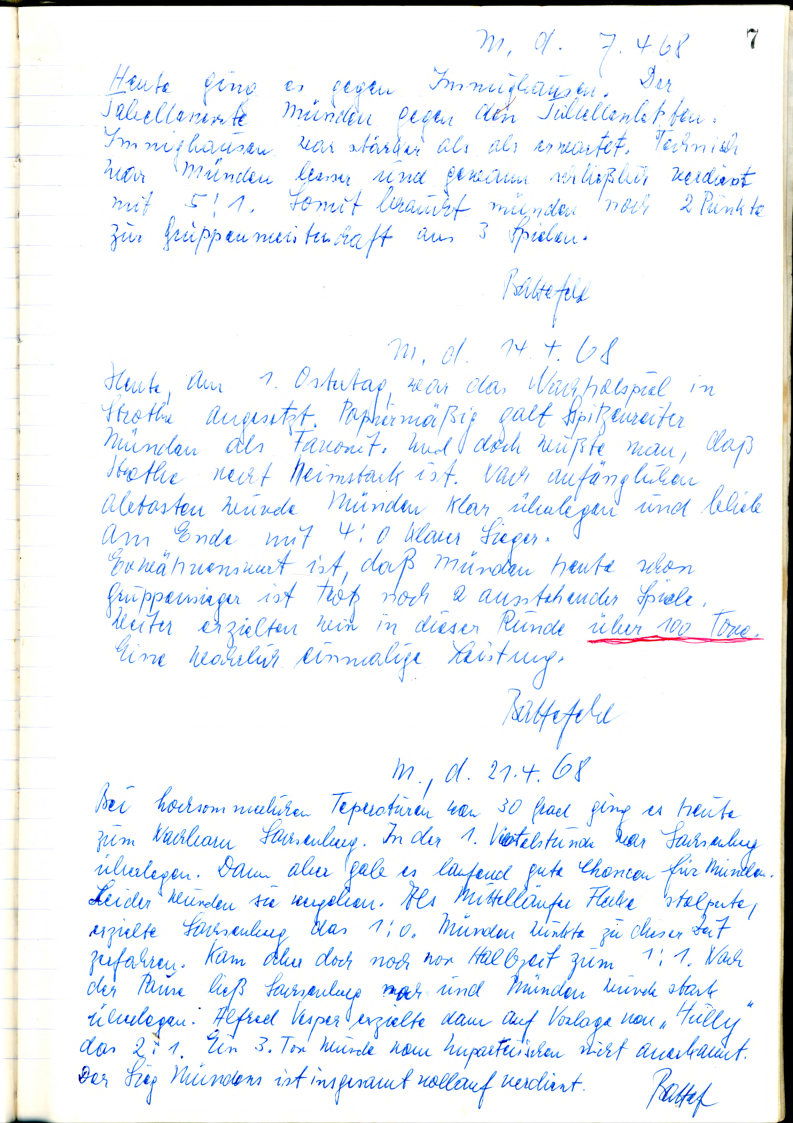 7
M, d. 7.4.68
Heute ging es gegen Immighausen. Der
Tabellenerste Münden gegen den Tabellenletzten.
Immighausen war stärker als als erwartet. Technisch
war Münden besser und gewann schließlich verdient
mit 5:1. Somit braucht münden noch 2 Punkte
zur Gruppenmeisterschaft aus 3 Spielen.
Battefeld
M, d. 14.4.68
Heute, am 1. Ostertag, war das Nachholspiel in
Strothe angesetzt. Papiermäßig galt Spitzenreiter
Münden als Favorit. Und doch wußte man, daß
Strothe recht Heimstark ist. Nach anfänglichen
abtasten wurde Münden klar überlegen und blieb
am Ende mit 4:0 klarer Sieger.
Erwähnenswert ist, daß Münden heute schon
Gruppensieger ist trotz noch 2 ausstehender Spiele.
Weiter erzielten wir in dieser Runde über 100 Tore.
Eine wahrlich einmalige Leistung.
Battefeld
M., d. 21.4.68
Bei hochsommerlichen Teperaturen von 30 Grad ging es heute
zum Nachbarn Sachsenberg. In der 1. Viertelstunde war Sachsenberg
überlegen. Dann aber gab es laufend gute Chancen für Münden.
Leider wurden sie vergeben. Als Mittelläufer stolperte,
erzielte Sachsenberg das 1:0. Münden wirkte zu dieser Zeit
zerfahren. Kam aber doch noch vor Halbzeit zum 1:1. Nach
der Pause ließ Sachsenberg nach und Münden wurde stark
überlegen. Alfred Vesper erzielte dann auf Vorlage von „Fully"
das 2:1. Ein 3. Tor wurde vom Unparteiischen nicht anerkannt.
Der Sieg Mündens ist insgesamt vollauf verdient.
Battef